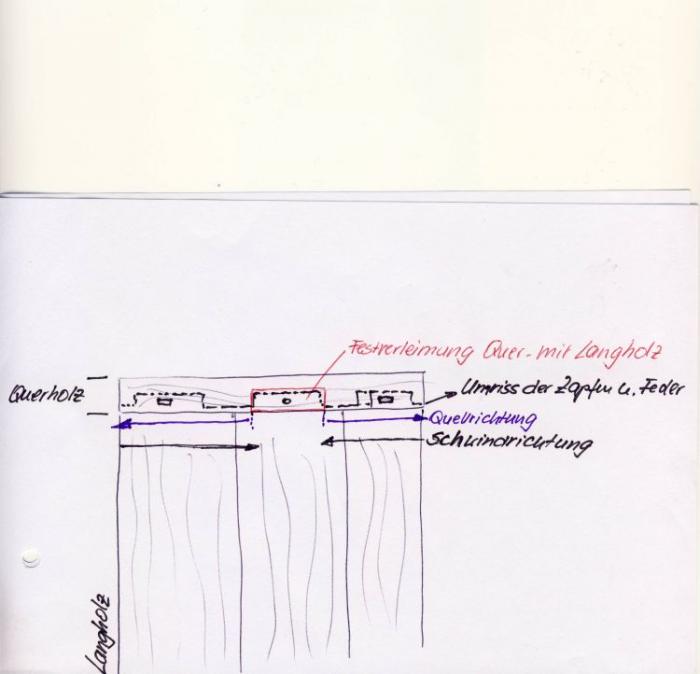 Festverleimung Quer- mit Langholz
Querholz
Umriss der Zapfen u. Feder
Quellrichtung
Schwindrichtung
Langholz